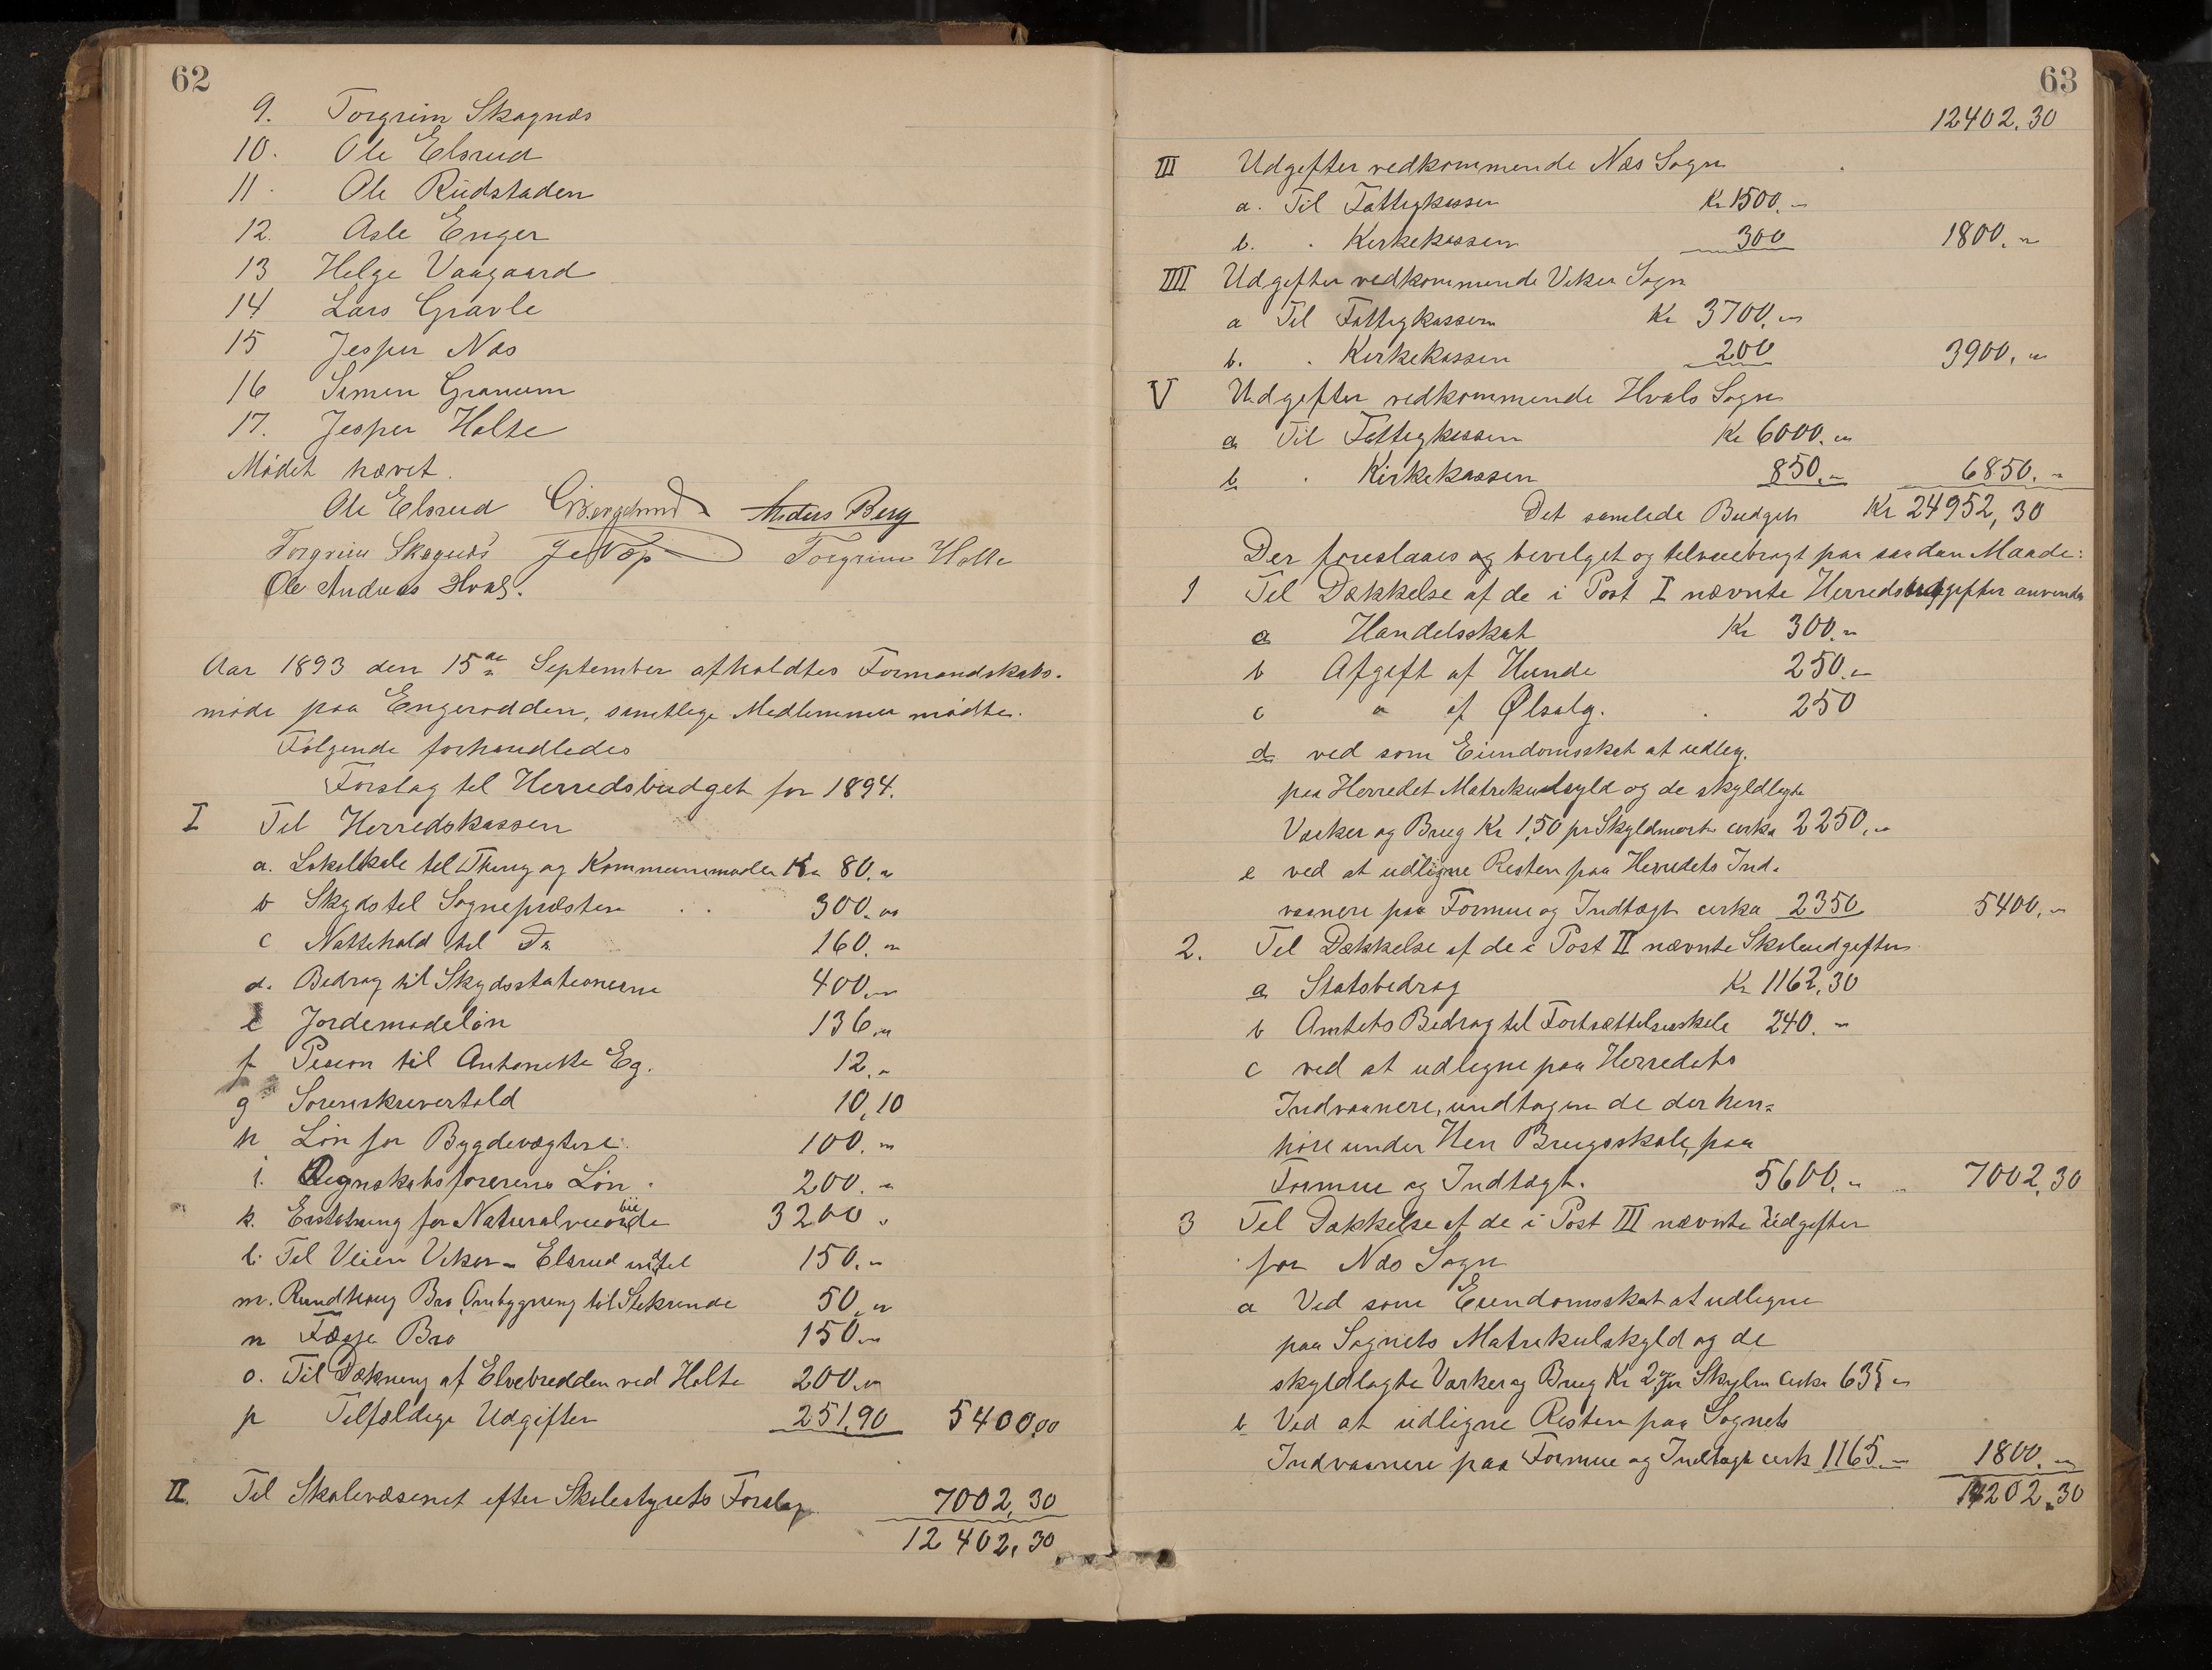 62
9. Torgrim Skagnæs
10. Ole Elsrud
11. Ole Rudstaden
12. Asle Enger
13 Helge Vaagaard
14 Lars Gravle
15 Jesper Næs
16 Simen Granum
17. Jesper Holte
Mødet hævet.
Ole Elsrud Anders Berg
Torgrim Skagnæs Torgrim Holte
Ole Andreas Hval.
Aar 1893 den 15de September afholdtes Formandskabs-
møde paa Engerodden, samtlige Medlemmer mødte.
Følgende forhandledes
Forslag til Herredsbudget for 1894.
I Til Herredskassen
a. Lokalleie til Thing og Kommunemøder Kr 80.„
b Skyds til Sognepræsten 300.„
c Nattehold til Do 160.„
d. Bidrag til Skydsstationerne 400.„
e Jordemoderløn 136.„
f Pesion til Antonette Eg. 12.„
g Sorenskrivertold 10,10
h Løn for Bygdevægtere. 100.„
i. Regnskabsførerens Løn. 200.„
k. Erstatning for Naturalveiarbeide 3200.
l. Til Veien Viker - Elsrud 150.„
m. Rundhaug Bro Ombygning til Stekrinde 50.„
n Fægje Bro 150.„
o. Til Dækning af Elvebredden ved Holte 200.„
p Tilfældige Udgifter 251,90 5400,00
II. Til Skolevæsenet efter Skolestyrets Forslag 7002,30
12402,30
63
12402,30
III Udgifter vedkommende Næs Sogn
a. Til Fattigkassen Kr 1500.„
b. „ Kirkekassen 300 1800.„
IIII Udgifter vedkommende Viker Sogn
a Til Fattigkassen Kr 3700.„
b. „ Kirkekassen 200 3900.„
V Udgifter vedkommende Hvals Sogn
a Til Fattigkassen Kr 6000.„
b „ Kirkekassen 850.„ 6850.„
Det samlede Budget Kr 24952,30
Der foreslaaes og bevilget og tilveiebragt paa saadan Maade:
1 Til Dækkelse af de i Post I nævnte Herredsudgifter anvendes
a Handelsskat Kr 300.„
b Afgift af Hunde 250.„
c „ af Ølsalg. 250
d ved som Eiendomsskat at udlig.
paa Herredet Matrikulskyld og de skyldlagte
Værker og Brug Kr 1,50 pr Skyldmark cirka 2250.„
e ved at udligne Resten paa Herredets Ind-
vaanere paa Formue og Indtægt cirka 2350 5400.„
2. Til Dækkelse af de i Post II nævnte Skoleudgifter
a Statsbidrag Kr 1162,30
b Amtets Bidrag til Fortsættelsesskole 240.„
c ved at udligne paa Herredets
Indvaanere, undtagen de der hen-
høre under Hen Brugsskole, paa
Formue og Indtægt. 5600.„ 7002,30
3 Til Dækkelse af de i Post III nævnte Udgifter
for Næs Sogn
a Ved som Eiendomsskat at udligne
paa Sognets Matrikulskyld og de
skyldlagte Værker og Brug Kr 2 pr Skylm cirka 635 „
b Ved at udligne Resten paa Sognets
Indvaanere paa Formue og Indtægt cirk 1165.„ 1800.„
14202,30